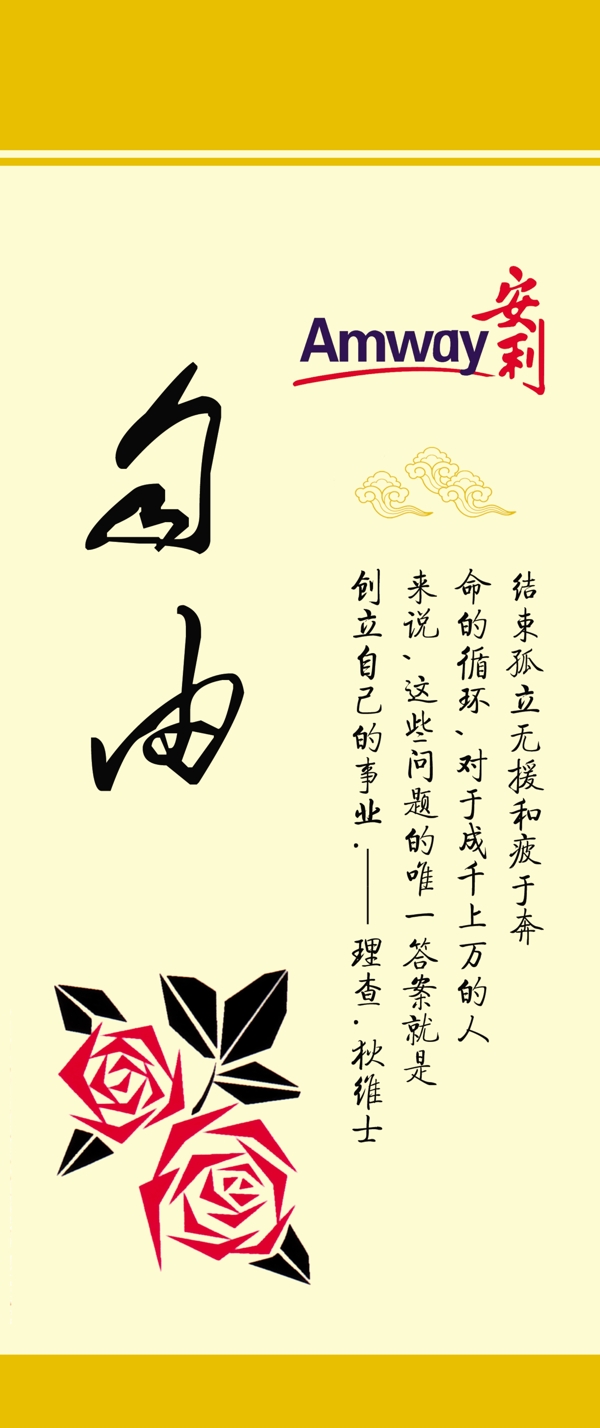 Amway安利
自由
结束孤立无援和疲于奔
命的循环、对于成千上万的人
来说、这些问题的唯一答案就是
创立自己的事业.——理查.狄维士